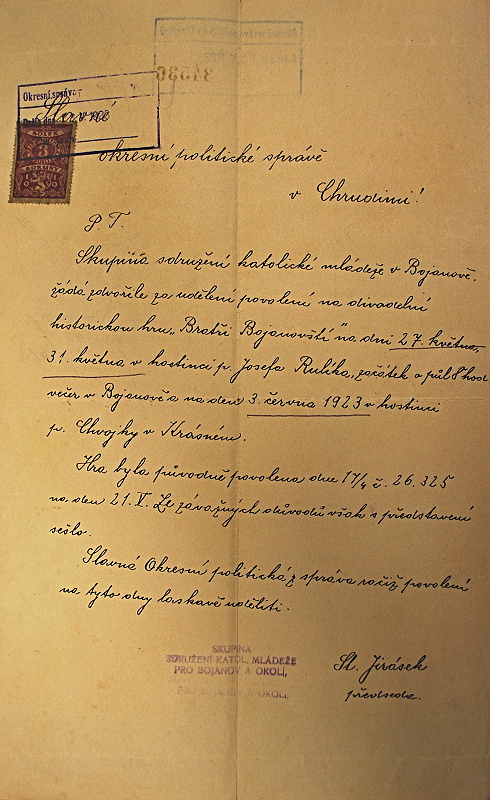 Okresní správa
Slavné
KOLEK
3
KORUNY
34536
okresní politické správě
v Chrudimi!
P. T.
Skupina sdružení katolické mládeže v Bojanově
žádá zdvořile za udělení povolení na divadelní
historickou hru „Bratři Bojanovští" na dni 27. května,
31. května v hostinci p. Josefa Rulíka, začátek o půl 8 hod
večer v Bojanově a na den 3. června 1923 v hostinci
p. Chvojky v Krásném.
Hra byla původně povolena dne 17/4 č. 26.325
na den 21. V. Ze závažných důvodů však s představení
sešlo.
Slavná Okresní politická správa račiž povolení
na tyto dny laskavě uděliti.
SKUPINA
SDRUŽENÍ KATOL. MLÁDEŽE
PRO BOJANOV A OKOLÍ,
PRO BOJANOV A OKOLÍ,
St. Jirásek
předseda.